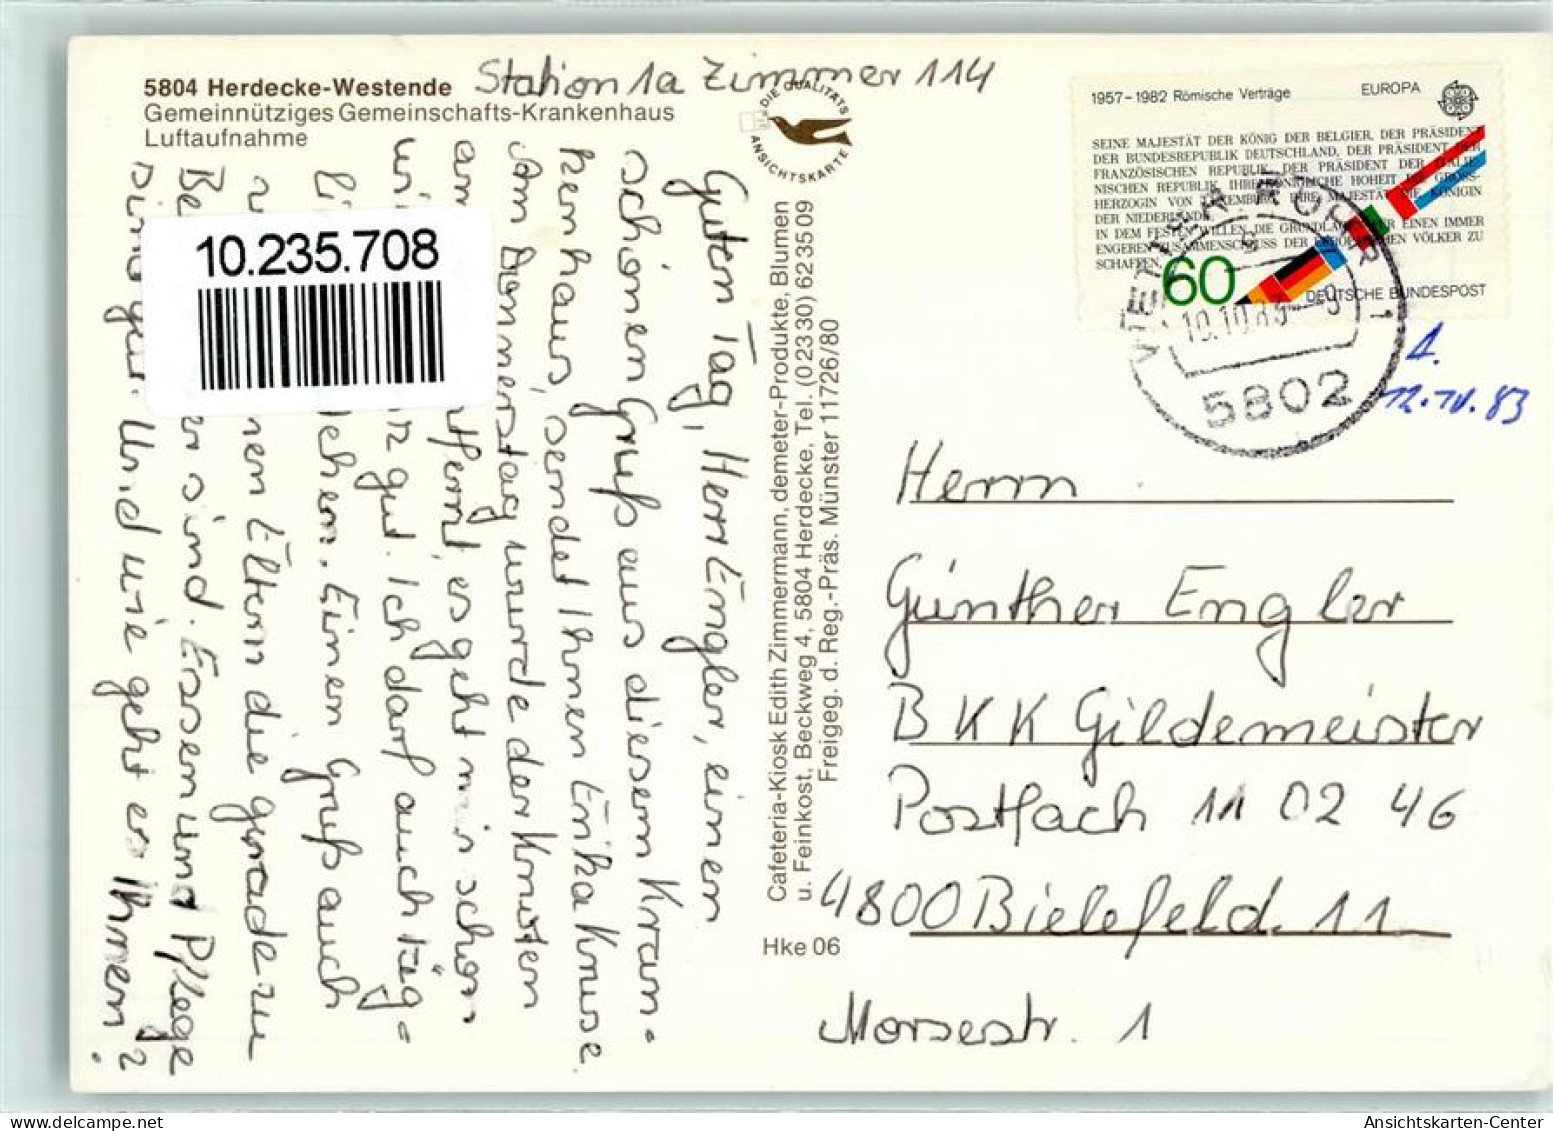 5804 Herdecke-Westende
Gemeinnütziges Gemeinschafts-Krankenhaus
Luftaufnahme
Station 1a Zimmer 114
DIE QUALITÄTS
ANSICHTSKARTE
10.235.708
Guten Tag, Herr Engler, einen
schönen Gruß aus diesem Kran-
kenhaus, sendet Ihnen Erika Knuse.
Am Donnerstag wurde der Knoten
entfernt, es geht mir schon
gut. Ich darf auch täg=
gehen. Einen Gruß auch
Eltern die gerade zu
sind. Essen und Pflege
sind gut. Und wie geht es Ihnen?
Cafeteria-Kiosk Edith Zimmermann, demeter-Produkte, Blumen
u. Feinkost, Beckweg 4, 5804 Herdecke, Tel. (0 23 30) 62 35 09
Freigeg. d. Reg.-Präs. Münster 11726/80
Hke 06
1957–1982 Römische Verträge
EUROPA
SEINE MAJESTÄT DER KÖNIG DER BELGIER, DER PRÄSIDENT
DER BUNDESREPUBLIK DEUTSCHLAND, DER PRÄSIDENT DER
FRANZÖSISCHEN REPUBLIK, DER PRÄSIDENT DER ITALIE-
NISCHEN REPUBLIK, IHRE KÖNIGLICHE HOHEIT DIE GROSS-
HERZOGIN VON LUXEMBURG, IHRE MAJESTÄT DIE KÖNIGIN
DER NIEDERLANDE,
IN DEM FESTEN WILLEN, DIE GRUNDLAGEN FÜR EINEN IMMER
ENGEREN ZUSAMMENSCHLUSS DER EUROPÄISCHEN VÖLKER ZU
SCHAFFEN,
60
DEUTSCHE BUNDESPOST
WETTER, RUHR 1
10.10.83-9
5802
12.10.83
Herrn
Günther Engler
BKK Gildemeister
Postfach 11 02 46
4800 Bielefeld 11
Morsestr. 1
Ansichtskarten-Center